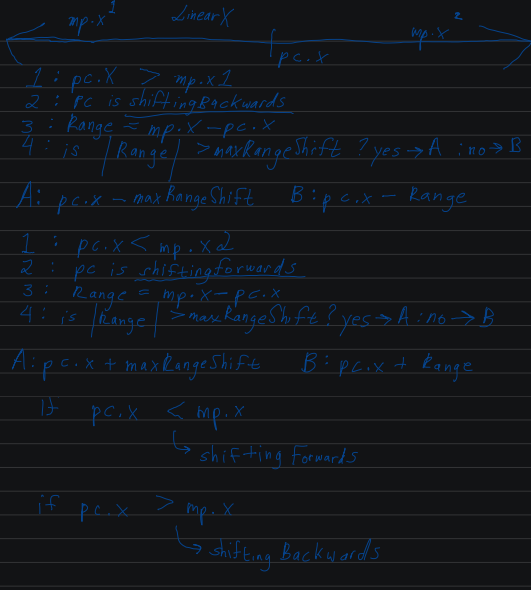 mp.x¹ LinearX mp.x²
pc.x
1 : pc.X > mp.x1
2 : Pc is shiftingBackwards
3 : Range = mp.X - pc.X
4 : is |Range| > maxRangeShift ? yes → A : no → B
A : pc.x - maxRangeShift B : pc.x - Range
1 : pc.x < mp.x2
2 : pc is shiftingforwards
3 : Range = mp.x - pc.x
4 : is |Range| > maxRangeShift ? yes → A : no → B
A : pc.x + maxRangeShift B : pc.x + Range
If pc.x < mp.x
↳ shifting Forwards
if pc.x > mp.x
↳ shifting Backwards